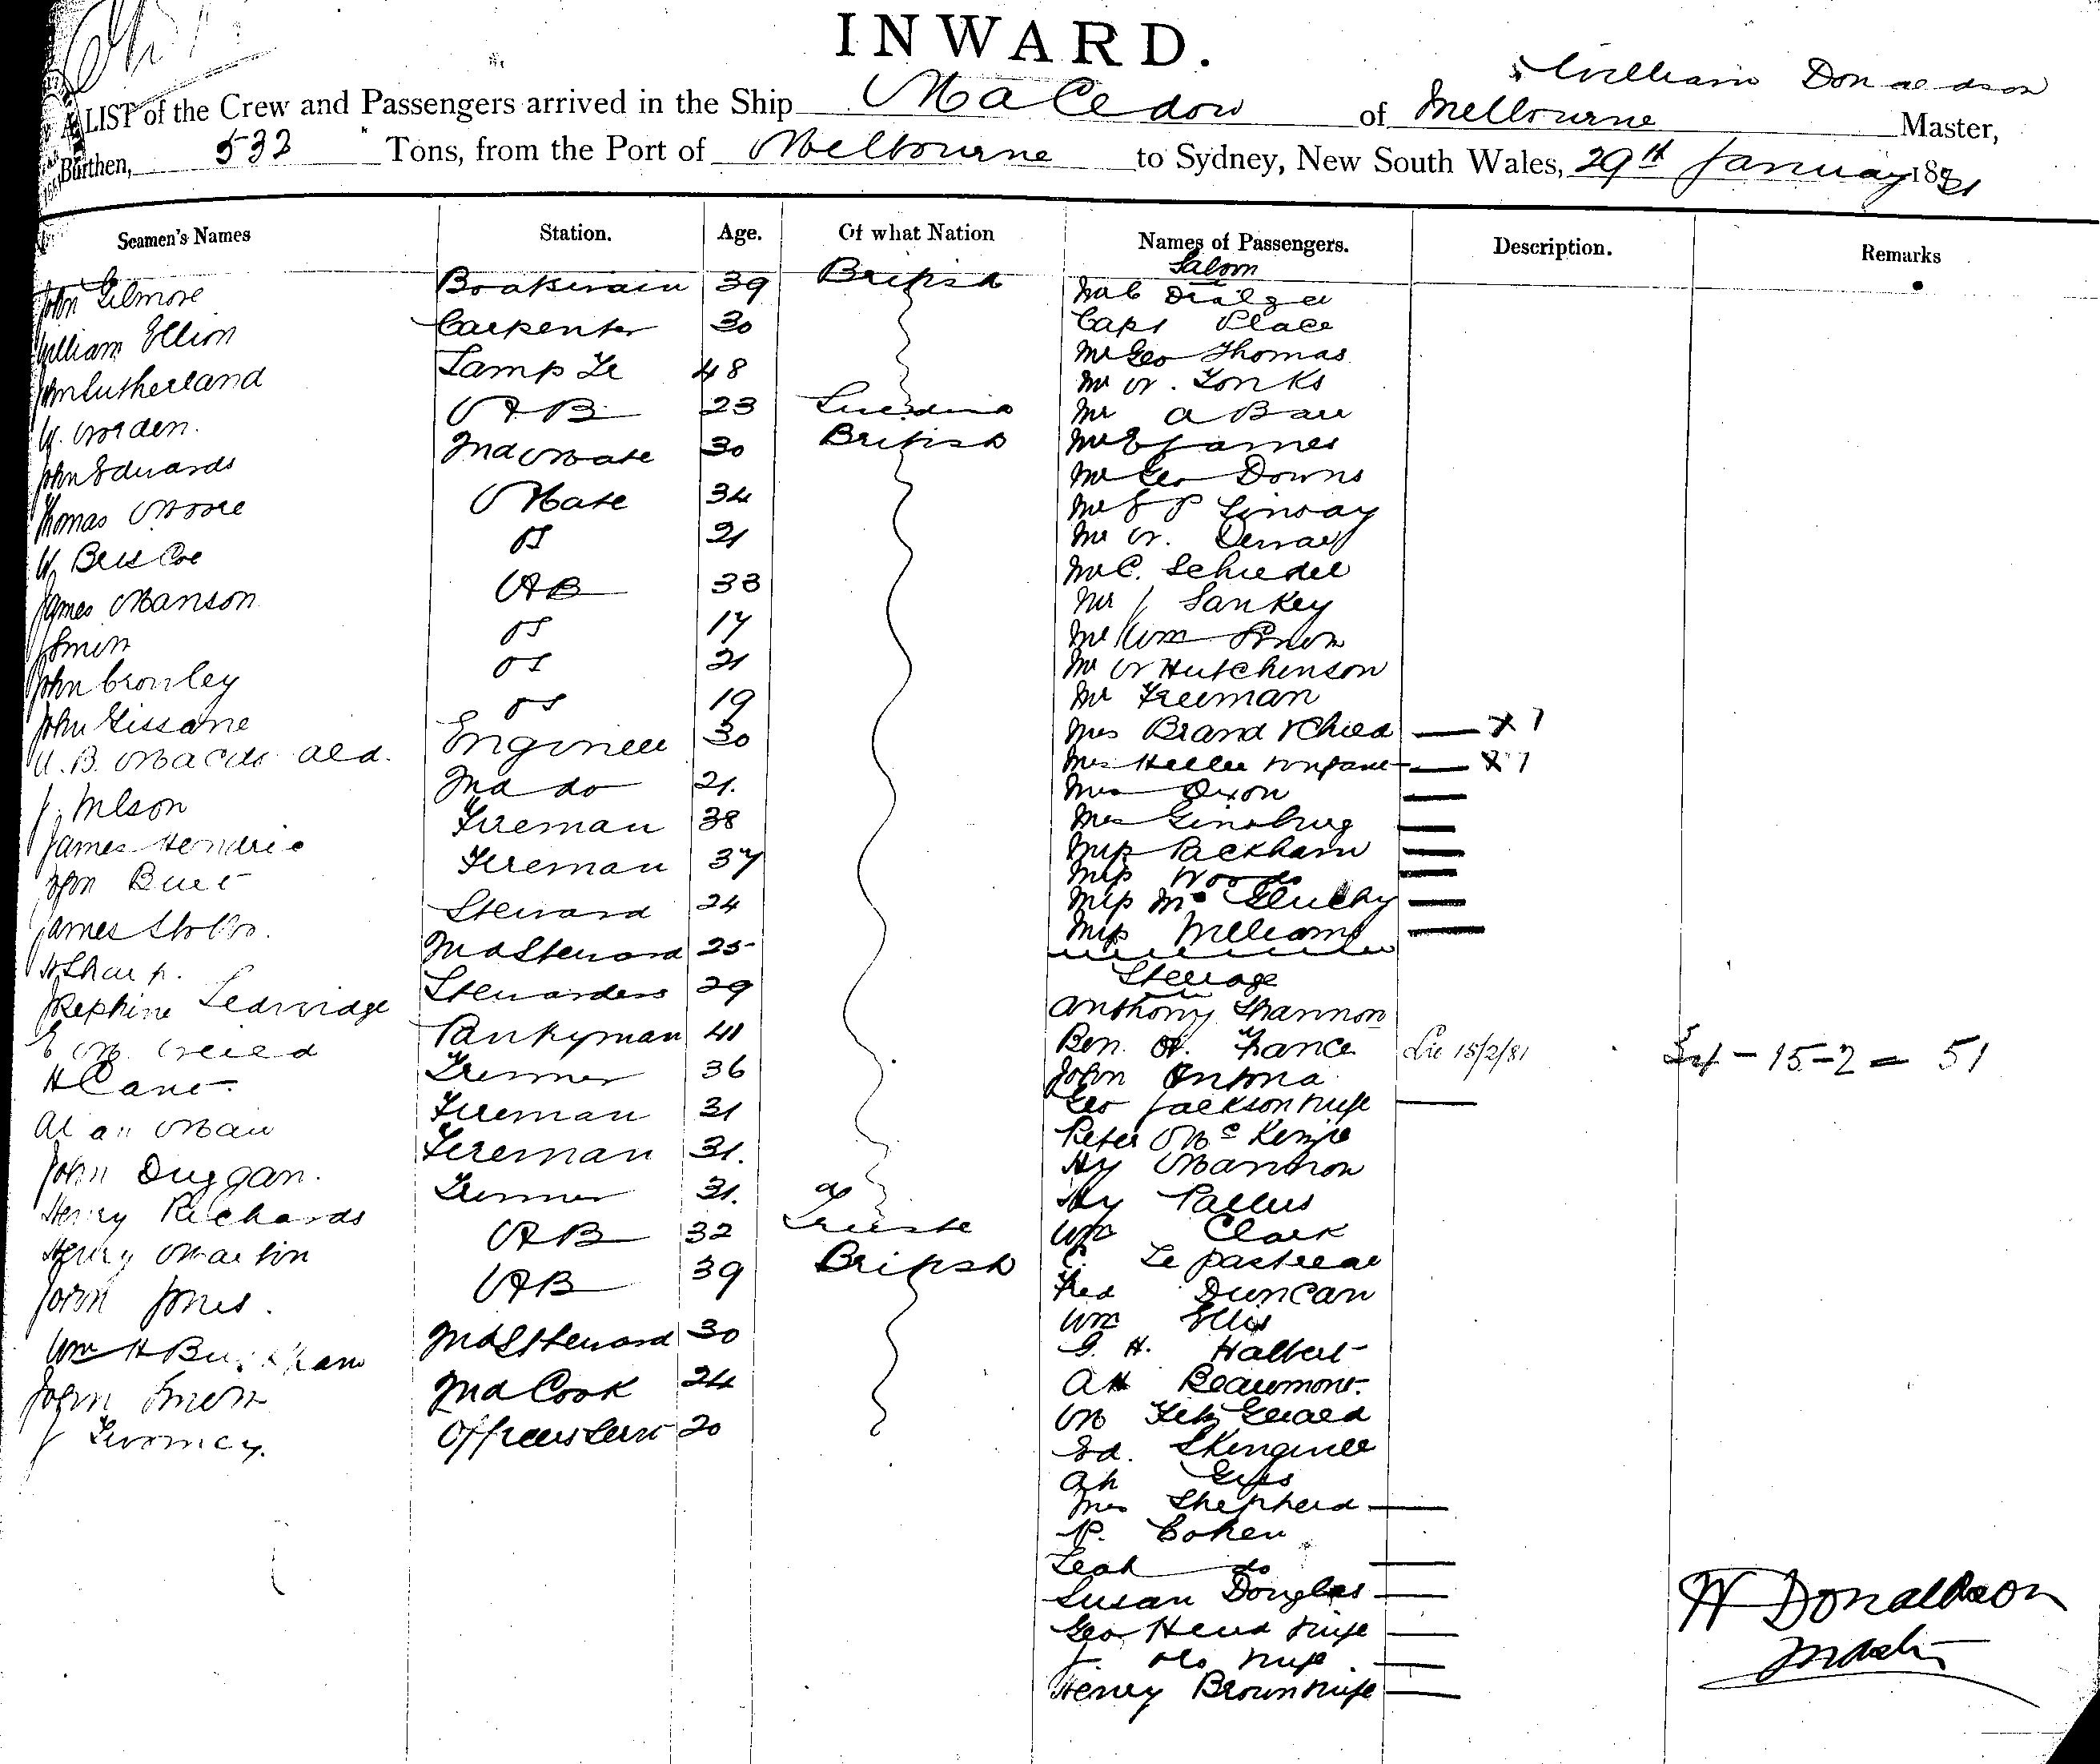 INWARD.
William Donaldson
A LIST of the Crew and Passengers arrived in the Ship Macedon of Melbourne Master,
Burthen, 532 Tons, from the Port of Melbourne to Sydney, New South Wales, 29th January 1881
Seamen's Names Station. Age. Of what Nation Names of Passengers. Description. Remarks
Saloon
John Gilmore Boatswain 39 British
Capt Place
William Ellion Carpenter 30 Mr Geo Thomas
John Sutherland Lamp Tr 48 Mr W. Tonks
W. Worden. AB 23 Mr A Barr
John Edwards 2nd Mate 30 British Mr E James
Mr Geo Downs
Thomas Moore Mate 34
W Briscoe OS 21 Mr W.
Mr C. Schiedel
James Manson AB 33 Mr J Sankey
J Smith OS 17 Mr Wm
John Cronley OS 21 Mr W Hutchinson
John Gissane OS 19 Mr Freeman
Mrs Brand & Child — X 1
Engineer 30 Mrs Heller & Infant — X 1
J. Wilson 2nd do 21. Mrs Dixon —
James Hendrie Fireman 38 Mrs Ginsburg —
Miss Packham —
John Burt Fireman 37 Miss Woods —
James Stobbs. Steward 24 Miss —
Miss Williams —
H Sharp. 2nd Steward 25
Steerage
Josephine Stewardess 29 Anthony Shannon
E M Pantryman 41 Ben. W. France 15/2/81 34 – 15 – 2 = 51
H Cane Trimmer 36 John Antona
Geo Jackson & wife —
Alan Mair Fireman 31 Peter McKenzie
John Duggan. Fireman 31. Hy
Henry Richards Trimmer 31. of Hy
Henry Martin AB 32 Trieste Wm Clark
John Jones. AB 39 British
Fred Duncan
Wm H 2nd Steward 30 Wm Ellis
G. H. Halbert
John Smith 2nd Cook 24 A H Beaumont.
J Twomey. Officers Servt 20 M FitzGerald
Ed.
Ah
Mrs Shepherd —
P. Cohen
Leah do —
Susan Douglas —
Geo Head & wife —
J. do & wife —
Henry Brown & wife —
W Donaldson
Master